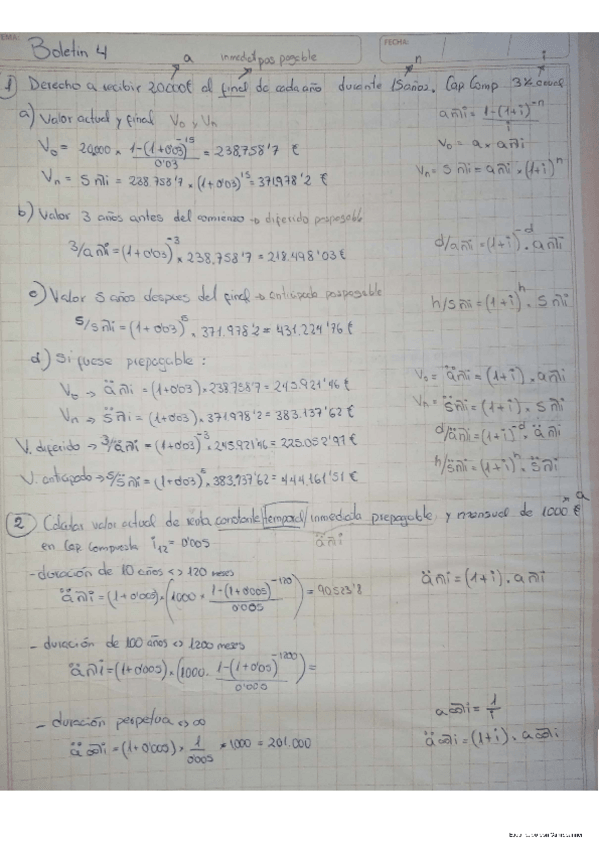 TEMA:
FECHA:
Boletin 4
a inmediat pospagable n i
1) Derecho a recibir 20000€ al final de cada año durante 15 años. Cap Comp 3% anual
a) Valor actual y final V₀ y Vn
an̅|i = 1-(1+i)^-n / i
V₀ = 20,000 × 1-(1+0'03)^-15 / 0'03 = 238,758'7 €
V₀ = a × an̅|i
Vn = sn̅|i = 238.758'7 × (1+0'03)^15 = 371978'2 €
Vn = sn̅|i = an̅|i × (1+i)^n
b) Valor 3 años antes del comienzo → diferido pospagable
3/an̅|i = (1+0'03)^-3 × 238.758'7 = 218.498'03€
d/an̅|i = (1+i)^-d · an̅|i
c) Valor 5 años despues del final → anticipado pospagable
h/sn̅|i = (1+i)^h · sn̅|i
5/sn̅|i = (1+0'03)^5 · 371.978'2 = 431.224'76 €
d) Si fuese prepagable :
V₀ → än̅|i = (1+0'03) · 238758'7 = 245.921'46 €
V₀ = än̅|i = (1+i) · an̅|i
Vn → s̈n̅|i = (1+0'03) · 371978'2 = 383.137'62 €
Vn = s̈n̅|i = (1+i) · sn̅|i
V. diferido → 3/än̅|i = (1+0'03)^-3 · 245.921'46 = 225.052'97 €
d/än̅|i = (1+i)^-d · än̅|i
V. anticipado → 5/s̈n̅|i = (1+0'03)^5 · 383,737'62 = 444.161'51 €
h/s̈n̅|i = (1+i)^h · s̈n̅|i
a
2) Calcular valor actual de renta constante/temporal/inmediata prepagable, y mensual de 1000 €
en Cap. Compuesta i₁₂ = 0'005
än̅|i
- duración de 10 años <> 120 meses
än̅|i = (1+0'005) · (1000 × 1-(1+0'005)^-120 / 0'005) = 90523'8
än̅|i = (1+i) · an̅|i
- duración de 100 años <> 1200 meses
än̅|i = (1+0'005) · (1000 · 1-(1+0'05)^-1200 / 0'005) =
- duración perpetua <> ∞
a∞̅|i = 1/i
ä∞̅|i = (1+0'005) × 1/0'005 × 1000 = 201.000
ä∞̅|i = (1+i) · a∞̅|i